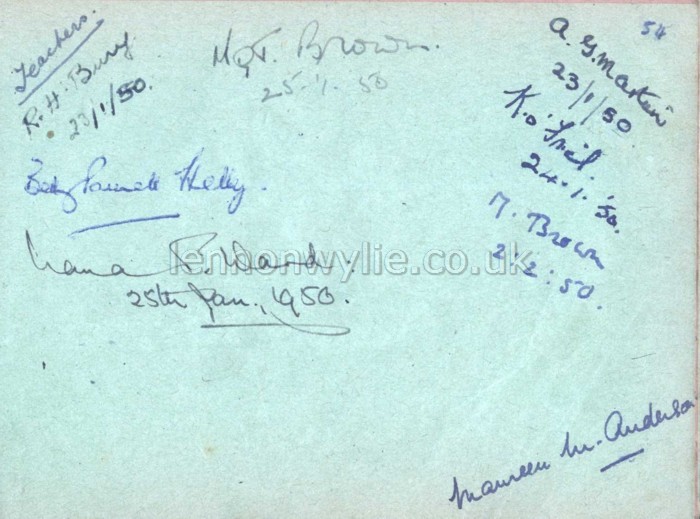 Teachers.
R. H. Bury
23/1/50.
Mgt. Brown.
25.1.50
54
A. G. Martin
23/1/50
K. O'Friel.
24.1.'50.
M. Brown
2:2:50.
Betty Kelly.
R. Ward.
25th Jan., 1950.
lennonwylie.co.uk
Maureen M. Anderson